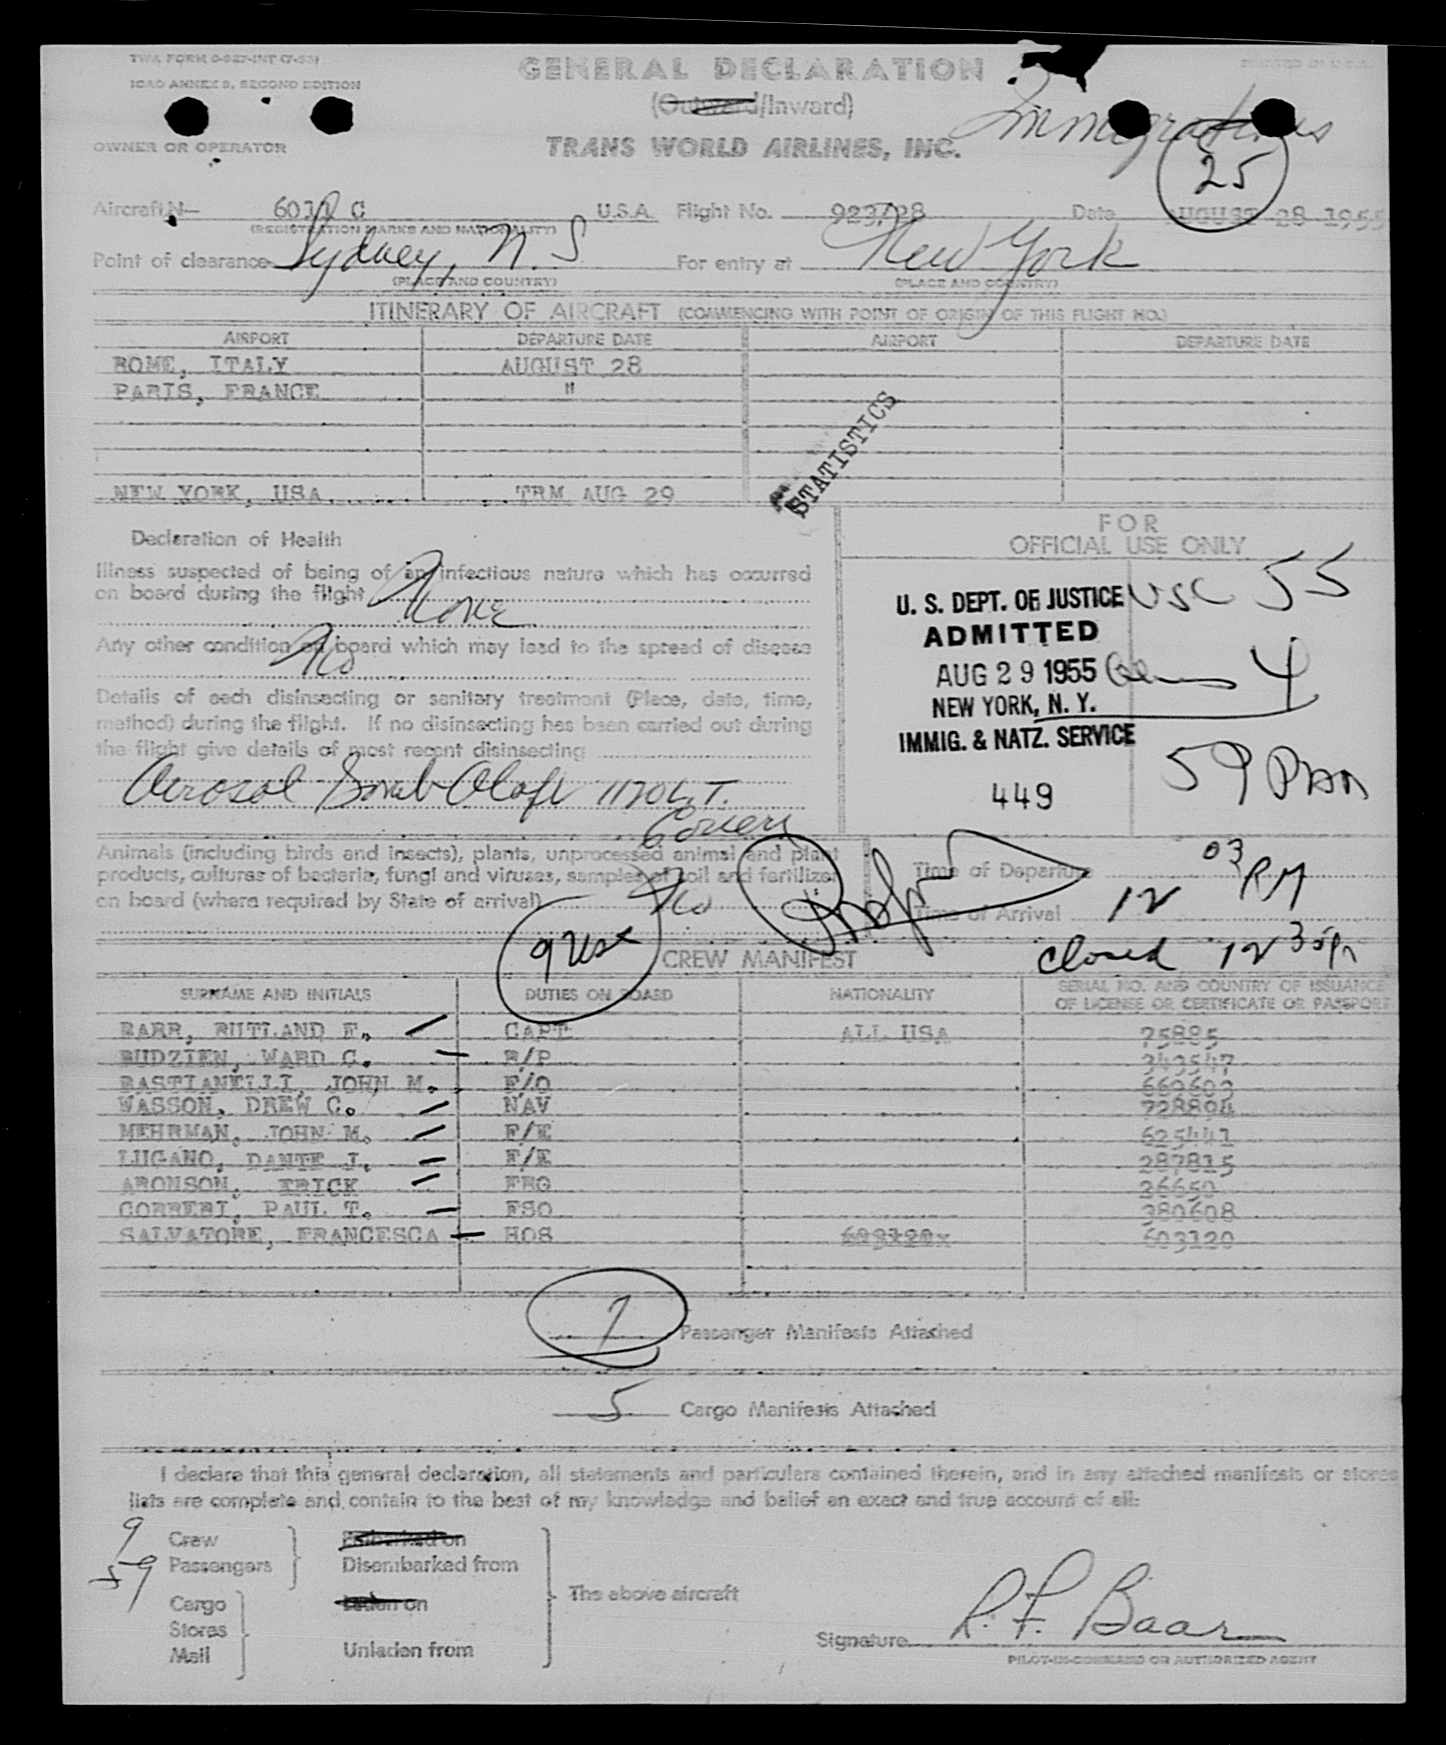 TWA FORM O-827-INT (7-53)
ICAO ANNEX 9, SECOND EDITION
GENERAL DECLARATION
(Outward/Inward)
OWNER OR OPERATOR
TRANS WORLD AIRLINES, INC.
Immigrations
25
Aircraft N- 6011 C U.S.A. Flight No. 923/28 Date AUGUST 28 1955
(REGISTRATION MARKS AND NATIONALITY)
Point of clearance Sydney, N.S For entry at New York
(PLACE AND COUNTRY) (PLACE AND COUNTRY)
ITINERARY OF AIRCRAFT (COMMENCING WITH POINT OF ORIGIN OF THIS FLIGHT NO.)
AIRPORT DEPARTURE DATE AIRPORT DEPARTURE DATE
ROME, ITALY AUGUST 28
PARIS, FRANCE "
STATISTICS
NEW YORK, USA TRM AUG 29
Declaration of Health
FOR
OFFICIAL USE ONLY
Illness suspected of being of an infectious nature which has occurred
on board during the flight None
Any other condition on board which may lead to the spread of disease
No
Details of each disinsecting or sanitary treatment (Place, date, time,
method) during the flight. If no disinsecting has been carried out during
the flight give details of most recent disinsecting
Aerosol Bomb Aloft 1120 L.T.
Correri
U. S. DEPT. OF JUSTICE USC 55
ADMITTED
AUG 29 1955 4
NEW YORK, N. Y.
IMMIG. & NATZ. SERVICE
449
59 Pass
Animals (including birds and insects), plants, unprocessed animal and plant
products, cultures of bacteria, fungi and viruses, samples of soil and fertilizer
on board (where required by State of arrival) No
Time of Departure
Time of Arrival 12 03 PM
closed 12 35 pm
9 USC
CREW MANIFEST
SURNAME AND INITIALS DUTIES ON BOARD NATIONALITY SERIAL NO. AND COUNTRY OF ISSUANCE
OF LICENSE OR CERTIFICATE OR PASSPORT
BAAR, RUTLAND F. CAPT ALL USA 75885
BUDZIEN, WARD C. R/P 343547
BASTIANELLI, JOHN M. F/O 669603
WASSON, DREW C. NAV 728894
MEHRMAN, JOHN M. F/E 625441
LUGANO, DANTE J. F/E 287815
ARONSON, ERICK FRO 36650
CORRERI, PAUL T. FSO 380608
SALVATORE, FRANCESCA HOS 603120
7 Passenger Manifests Attached
5 Cargo Manifests Attached
I declare that this general declaration, all statements and particulars contained therein, and in any attached manifests or stores
lists are complete and contain to the best of my knowledge and belief an exact and true account of all:
9 Crew Embarked on
59 Passengers Disembarked from
The above aircraft
Cargo Laden on
Stores
Mail Unladen from
Signature R. F. Baar
PILOT-IN-COMMAND OR AUTHORIZED AGENT